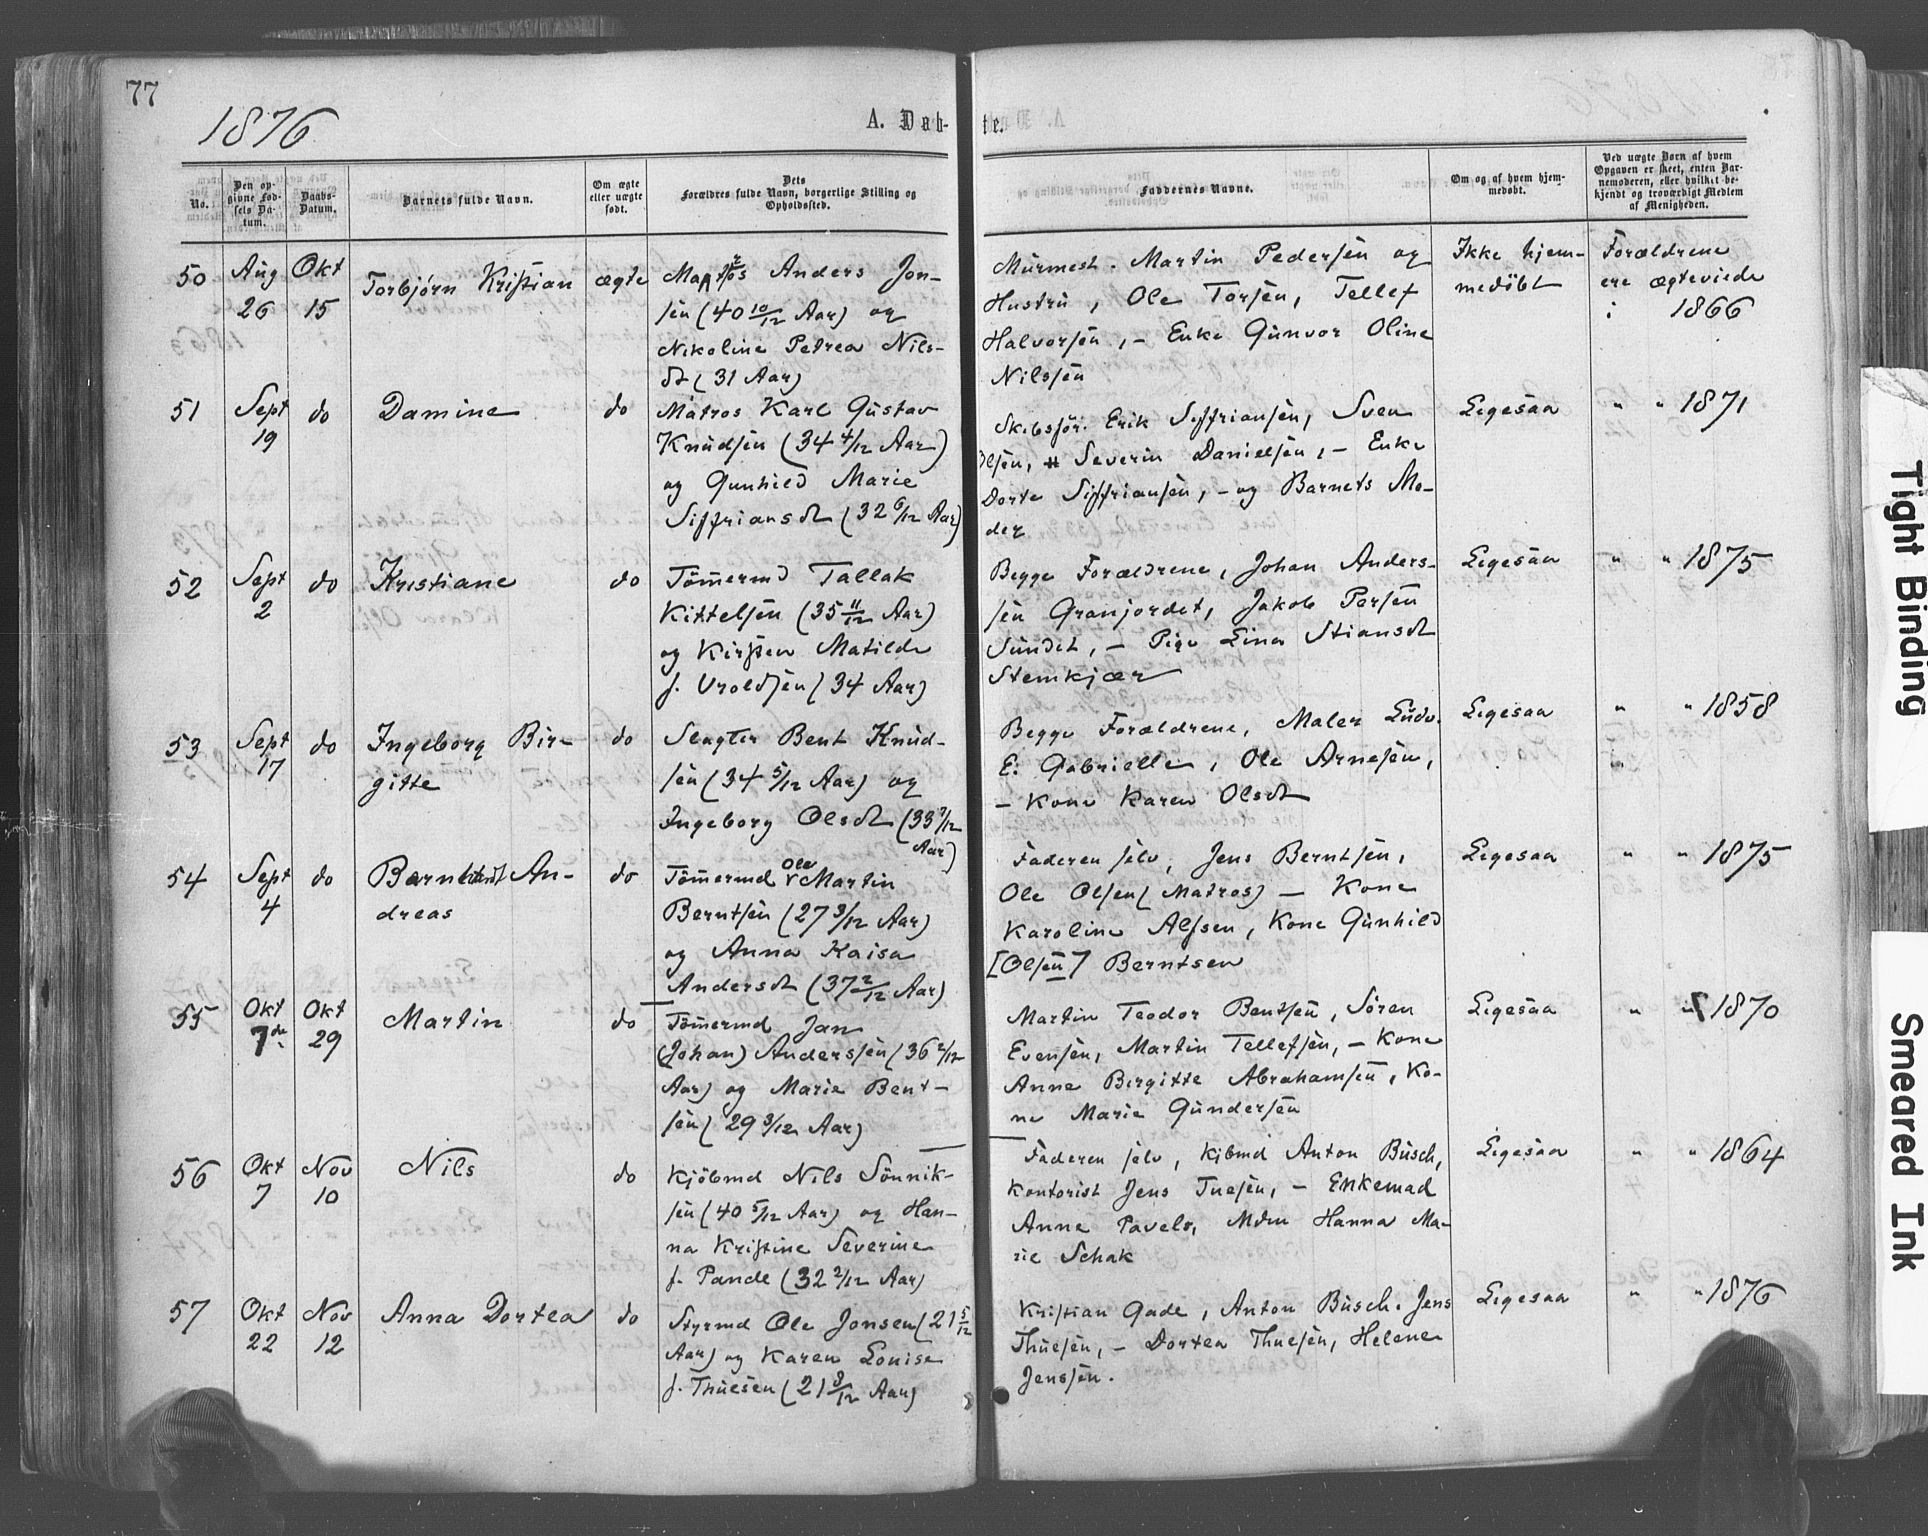 77
1876
A. Døb-
te.
No.
Den op-
givne Fød-
sels Da-
tum.
Daabs-
Datum.
Barnets fulde Navn.
Om ægte
eller uægte
født.
Dets
Forældres fulde Navn, borgerlige Stilling og
Opholdssted.
Faddernes Navne.
Om og af hvem hjem-
medøbt.
Ved uægte Børn af hvem
Opgaven er skeet, enten Bar-
nemoderen, eller hvilket be-
kjendt og troværdigt Medlem
af Menigheden.
50
Aug
26
Okt
15
Torbjørn Kristian
ægte
Anders Jon-
sen (40 10/12 Aar) og
Nikoline Petrea Nils-
dt (31 Aar)
Murmest. Martin Pedersen og
Hustru, Ole Torsen, Tellef
Halvorsen, – Enke Gunvor Oline
Nilssen
Ikke hjem-
medöbt
Forældrene
ere ægteviede
i 1866
51
Sept
19
do
Damine
do
Matros Karl Gustav
Knudsen (34 4/12 Aar)
og Gunhild Marie
Siffriansdt (32 6/12 Aar)
Skibsför. Erik Siffriansen, Sven
Olsen, Severin Danielsen, – Enke
Dorte Siffriansen, – og Barnets Mo-
der
Ligesaa
" " 1871
52
Sept
2
do
Kristiane
do
Tömermd Tallak
Kittelsen (35 11/12 Aar)
og Kirsten Matilde
f. Uroldsen (34 Aar)
Begge Forældrene, Johan Anders-
sen Granjordet, Jakob Persen
Sundet, – Pige Lina Stiansdt
Stemkjær
Ligesaa
" " 1875
53
Sept
17
do
Ingeborg Bir-
gitte
do
Slagter Bent Knud-
sen (34 5/12 Aar) og
Ingeborg Olsdt (33 7/12
Aar)
Begge Forældrene, Maler Ludv.
E. Gabrielle, Ole Arnesen,
– Kone Karen Olsdt
Ligesaa
" " 1858
54
Sept
4
do
An-
dreas
do
Tömermd Ole Martin
Berntsen (27 3/12 Aar)
og Anna Kaisa
Andersdt (37 2/12 Aar)
Faderen selv, Jens Berntsen,
Ole Olsen (Matros) – Kone
Karoline Alfsen, Kone Gunhild
[Olsen] Berntsen
Ligesaa
" " 1875
55
Okt
7de
Okt
29
Martin
do
Tömermd Jan
(Johan) Anderssen (36 2/12
Aar) og Marie Bent-
sen (29 3/12 Aar)
Martin Teodor Bentsen, Sören
Evensen, Martin Tellefsen, – Kone
Anne Birgitte Abrahamsen, Ko-
ne Marie Gundersen
Ligesaa
" 1870
56
Okt
7
Nov
10
Nils
do
Kjöbmd Nils Sönnik-
sen (40 5/12 Aar) og Han-
na Kristine Severine
f. Pande (32 2/12 Aar)
Faderen selv, Kjbmd Anton Busch,
Kontorist Jens Tuesen, – Enkemad
Anne Pavels, Mdm Hanna Ma-
rie Schak
Ligesaa
" " 1864
57
Okt
22
Nov
12
Anna Dortea
do
Styrmd Ole Jonsen (21 5/12
Aar) og Karen Louise
f. Thuesen (21 8/12 Aar)
Kristian Gade, Anton Busch. Jens
Thuesen, – Dortea Thuesen, Helene
Jenssen.
Ligesaa
" " 1876
Tight Binding
Smeared Ink